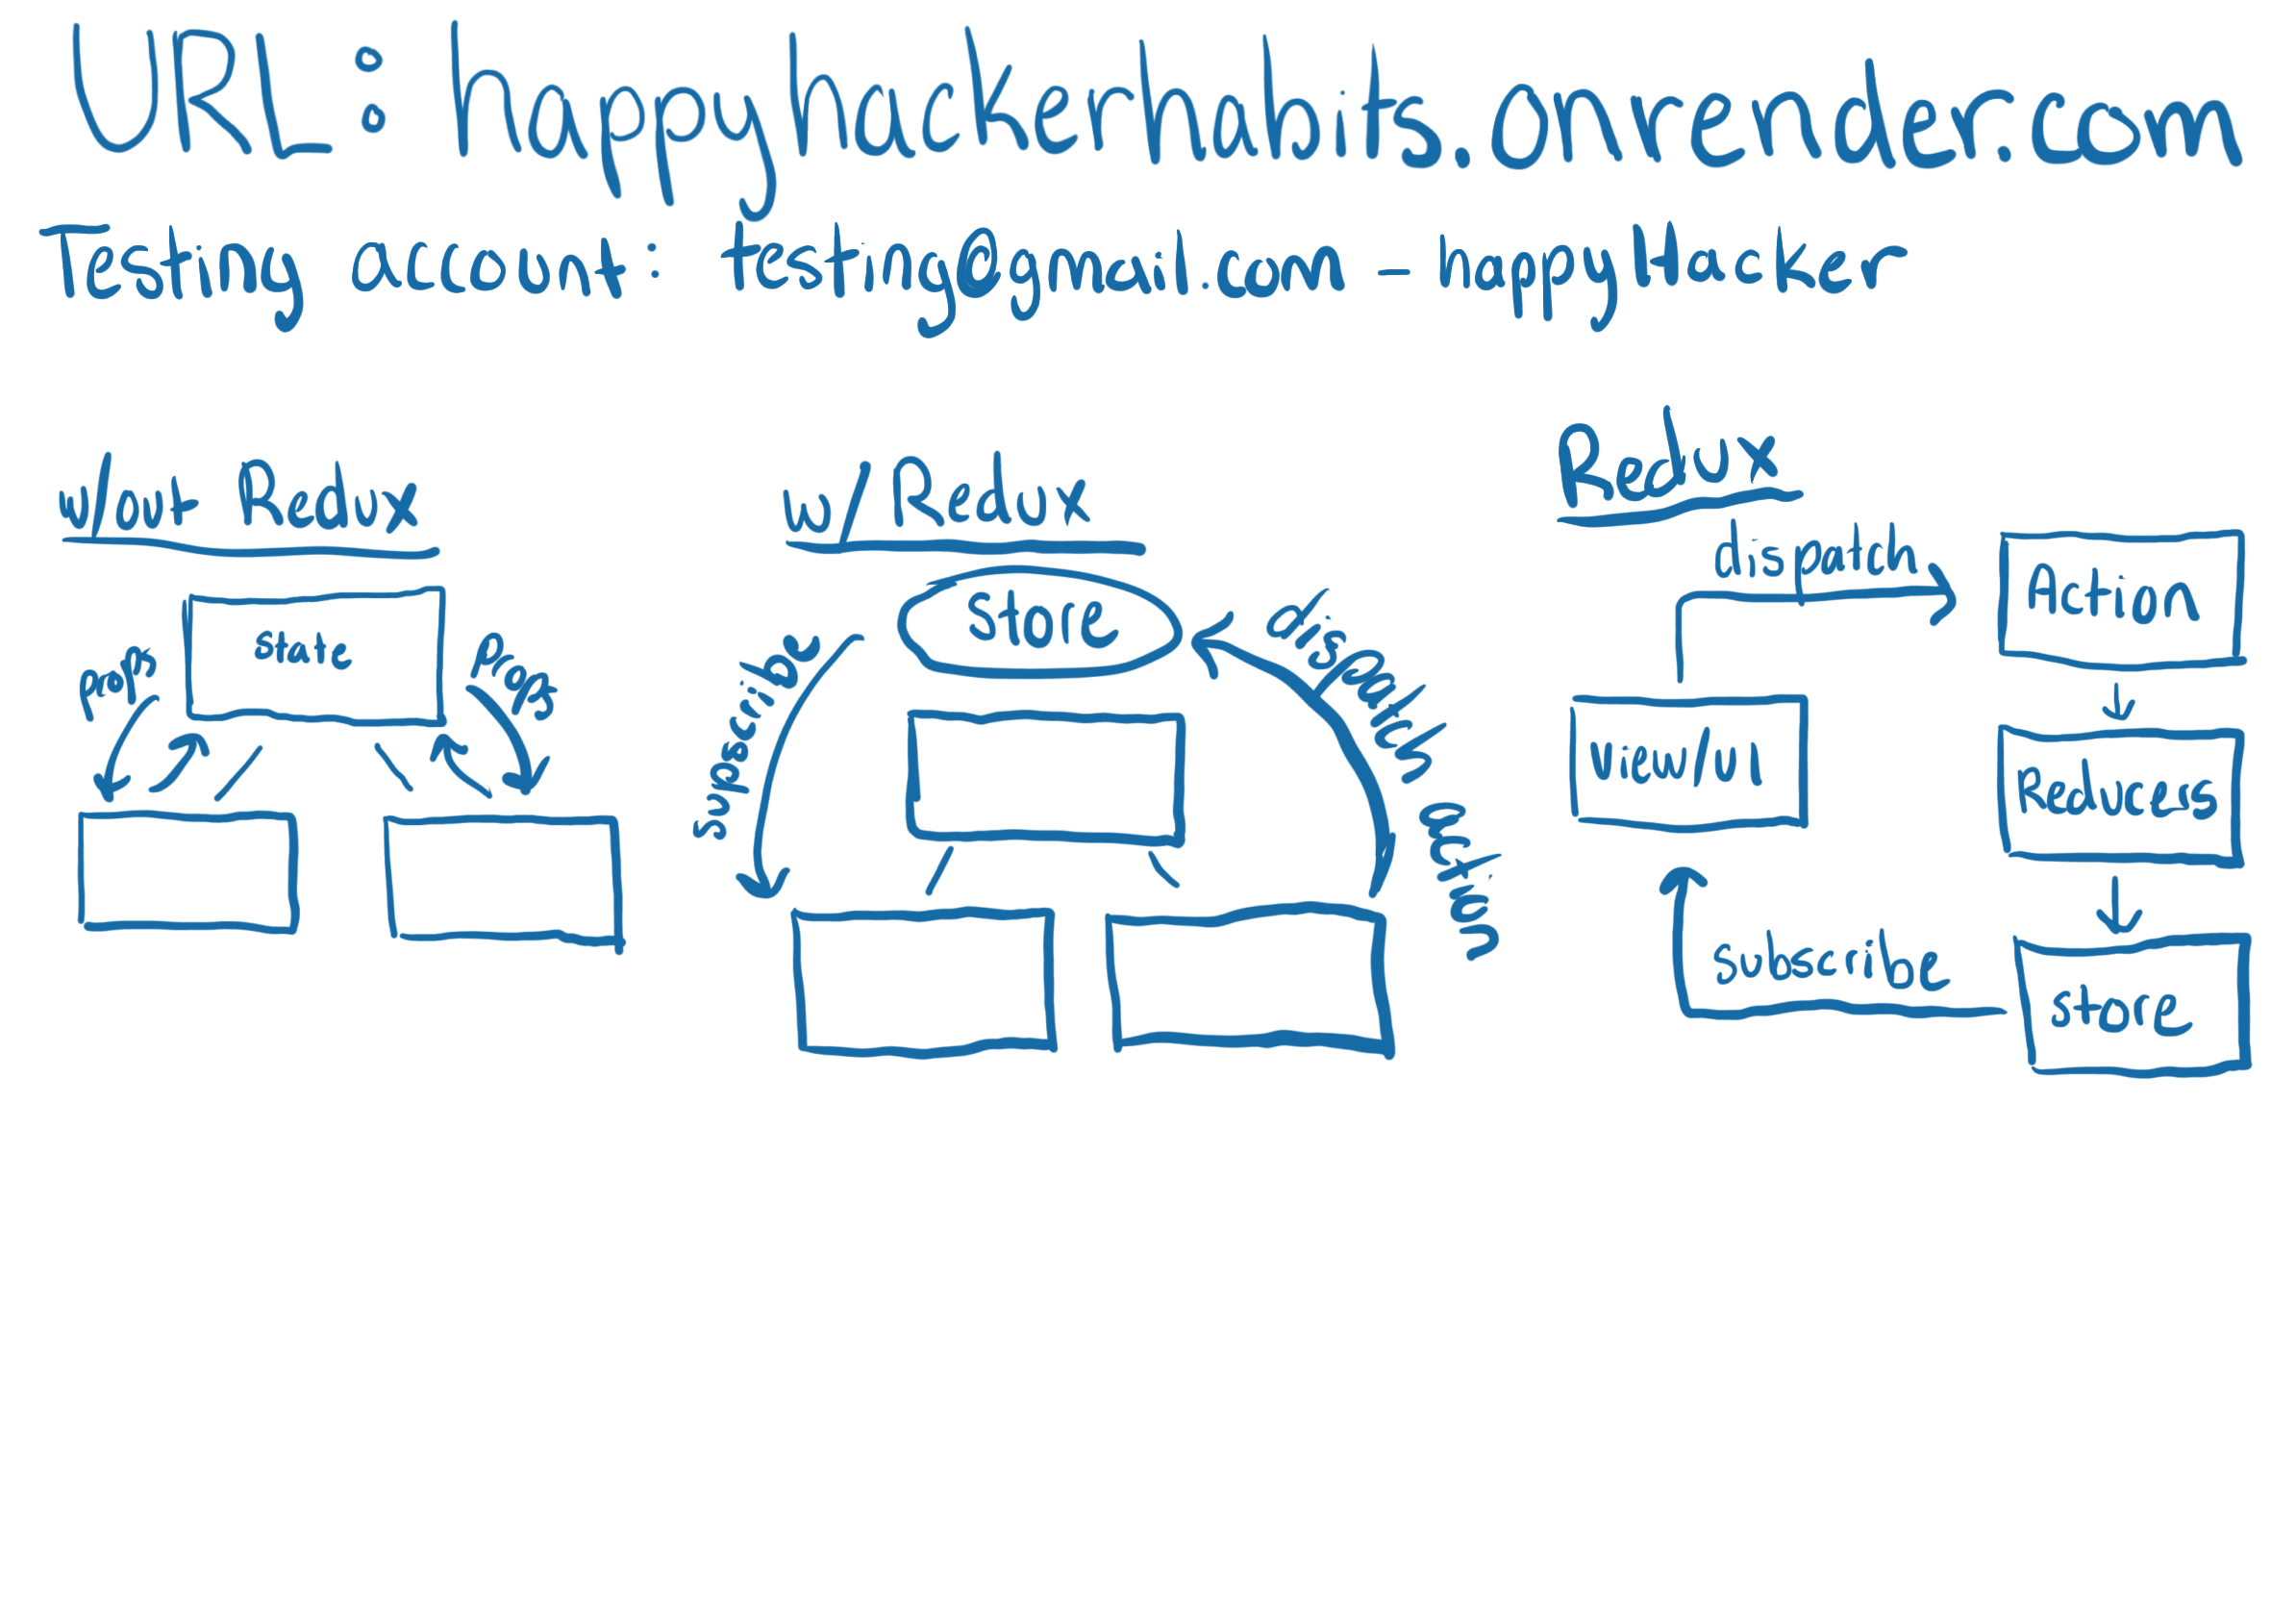 URL: happyhackerhabits.onrender.com
Testing account: testing@gmail.com - happyHacker
w/out Redux
state
props
props
w/ Redux
store
subscribe
dispatch action
Redux
dispatch
Action
view/UI
Reducers
subscribe
store